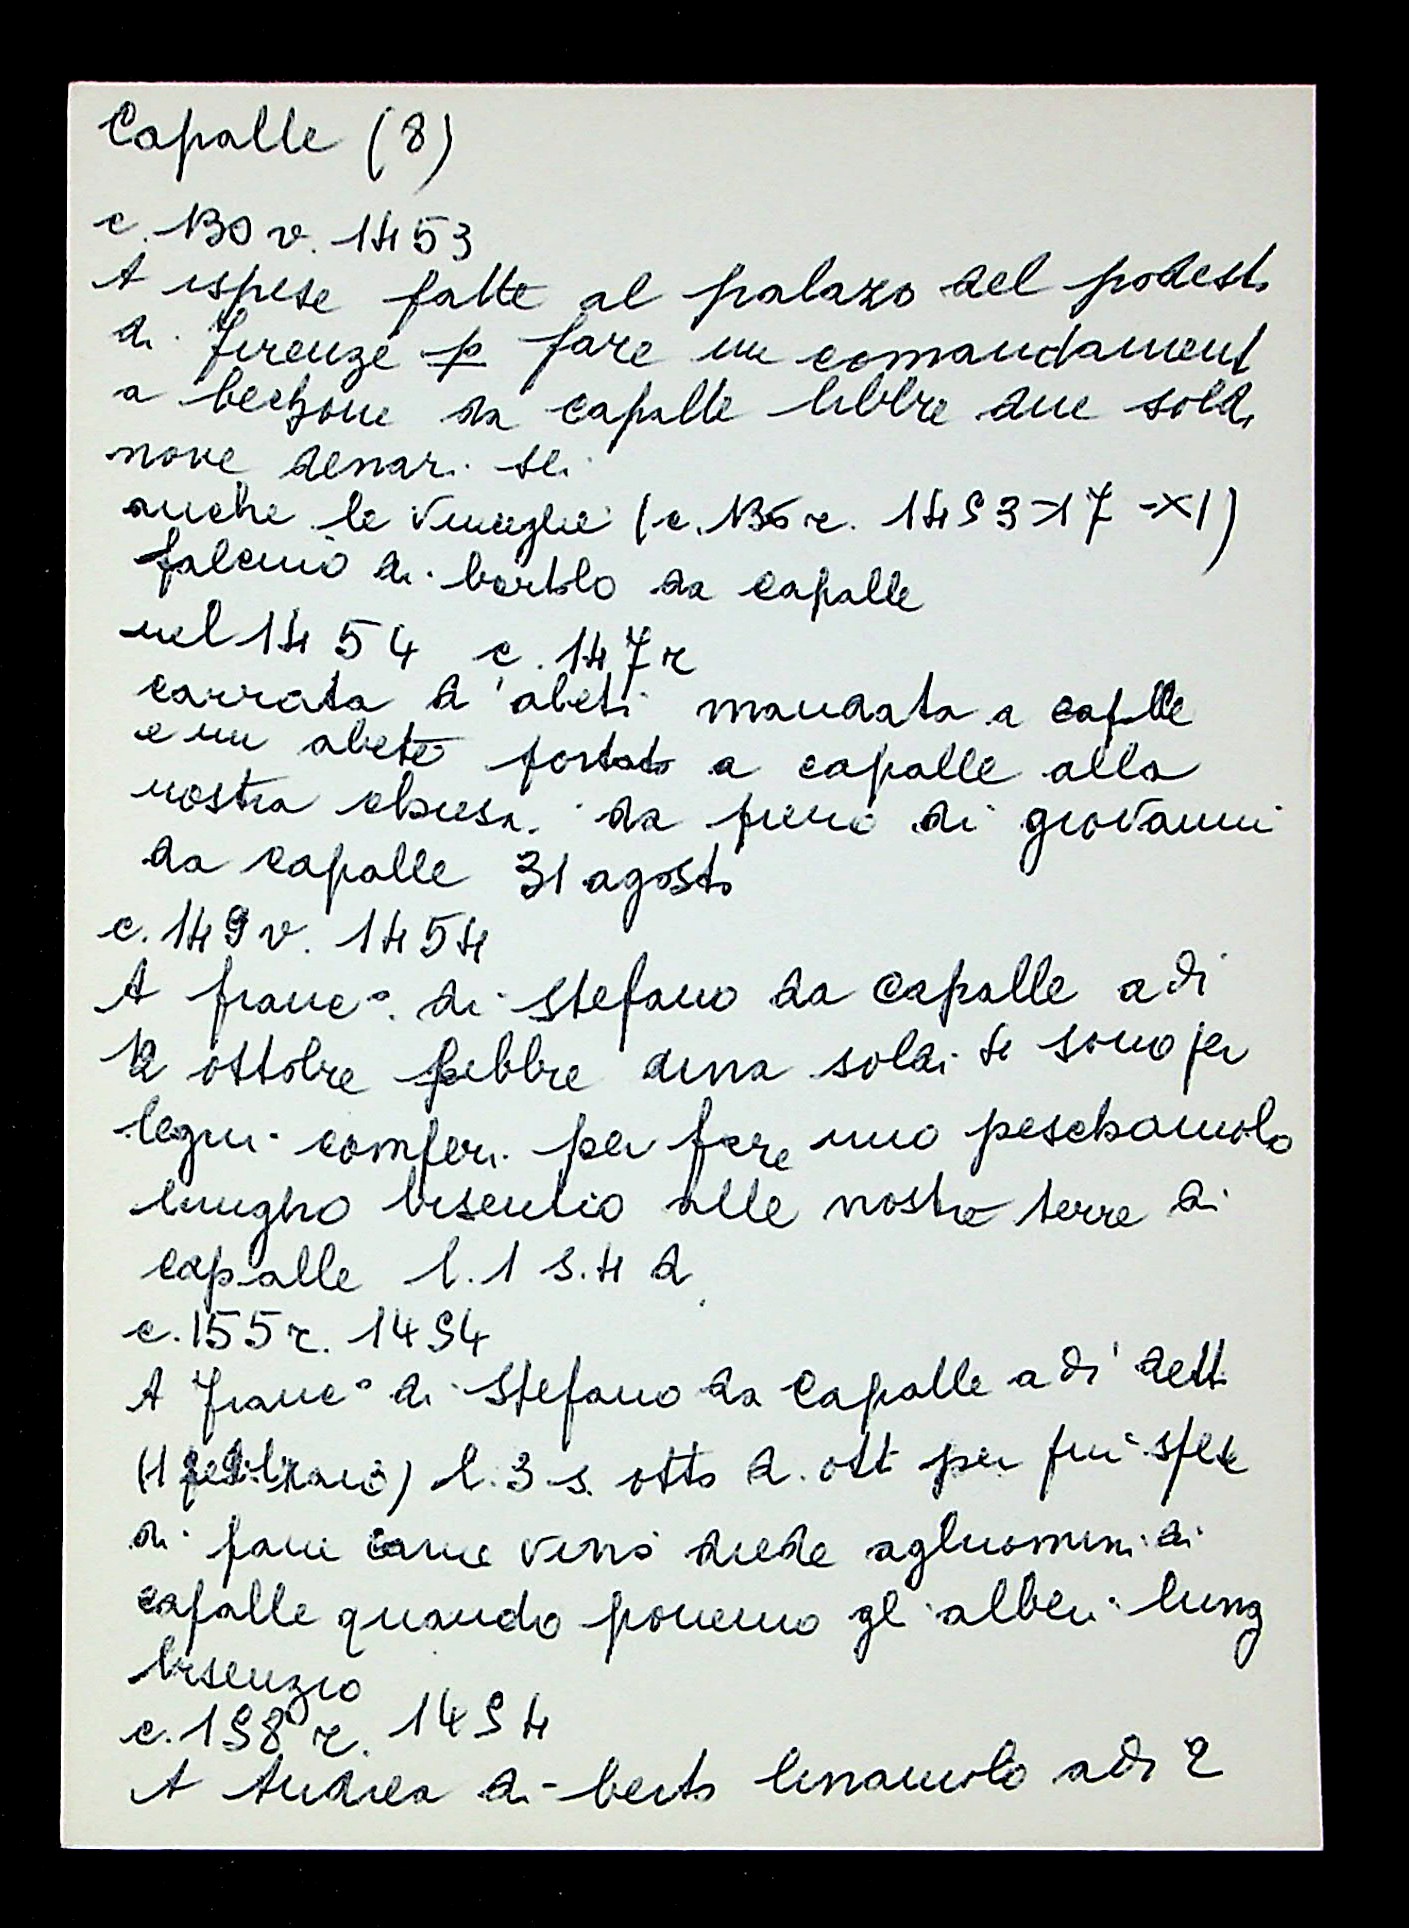 Capalle (8)
c. 130 v. 1453
A ispese fatte al palazo del podesto
di firenze p fare un comandament
a bechone da capalle libbre due soldi
nove denari sei
anche le vinciglie (c. 136 r. 1453 17-XI)
falcino di bartolo da capalle
nel 1454 c. 147 r
carrata d'abeti mandata a capalle
e un abete portato a capalle alla
nostra chiesa. da piero di giovanni
da capalle 31 agosto
c. 149 v. 1454
A franc° di Stefano da Capalle adi
12 ottobre libbre una soldi sono per
legni comperi per fare uno peschaiuolo
lungho bisentio alle nostre terre di
capalle l. 1 s. 4 d.
c. 155 r. 1454
A franc° di Stefano da Capalle a dì dett
(1 febbraio) l. 3 s. otto d. ott per più spese
di pane carne vino diede agluomini di
capalle quando ponemo gl alberi lung
bisenzio
c. 158 r. 1454
A Andrea di berto linaiuolo adi 2